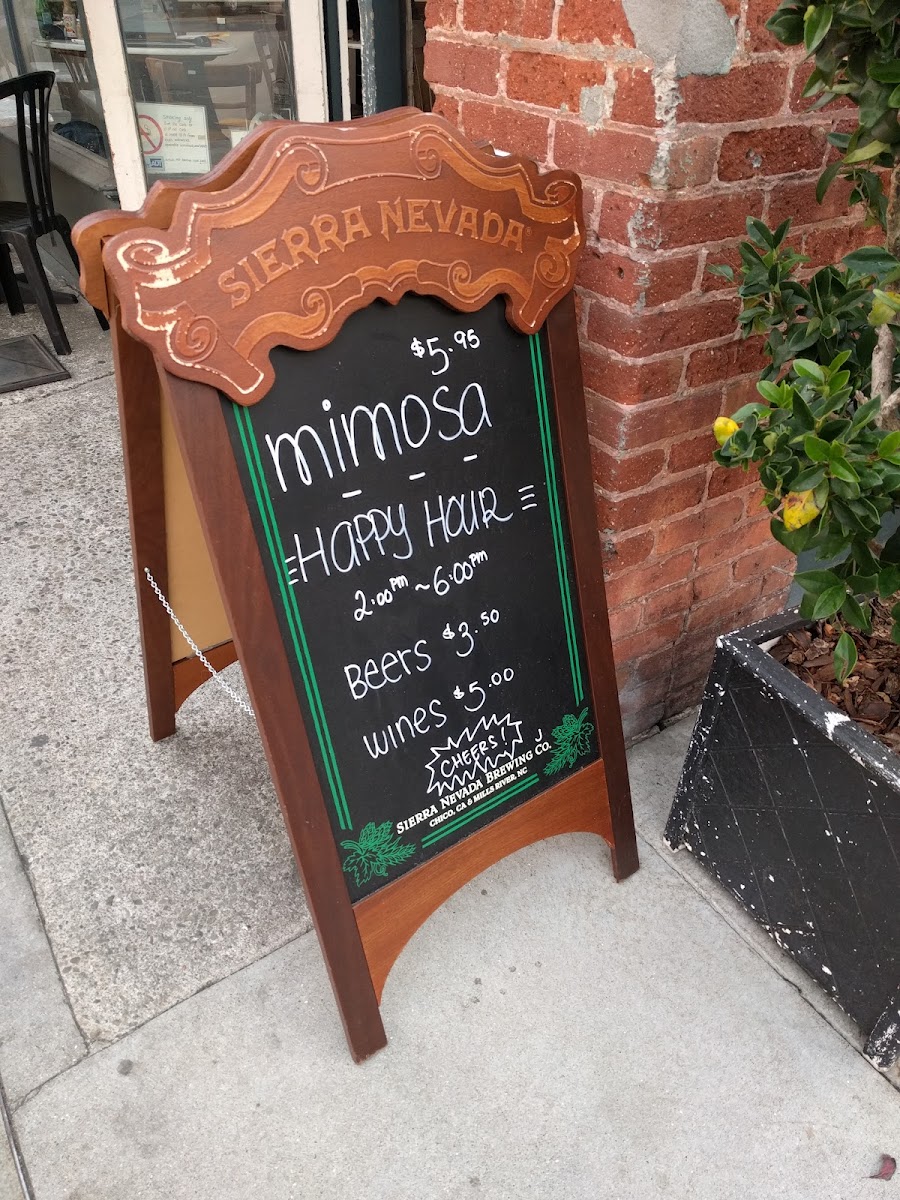 SIERRA NEVADA
$5.95
mimosa
HAPPY HOUR
2:00PM ~ 6:00PM
BEERS $3.50
WINES $5.00
CHEERS!
SIERRA NEVADA BREWING CO.
CHICO, CA & MILLS RIVER, NC